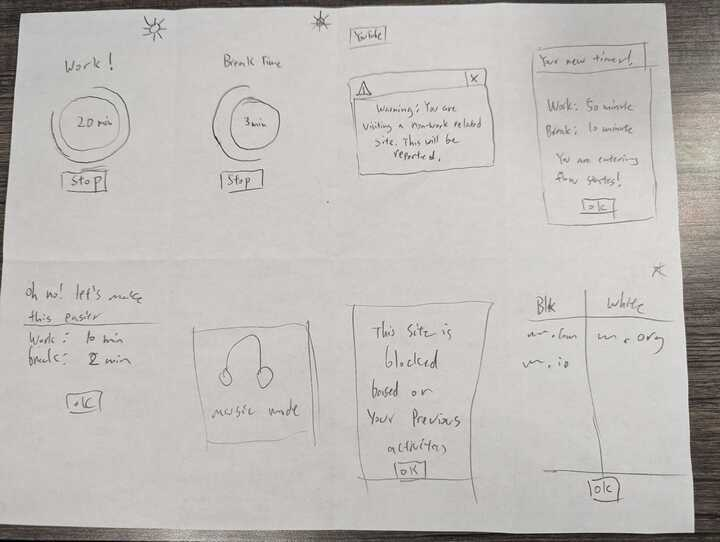 Work!
20 min
Stop
Break Time
3 min
Stop
YouTube
X
Warning: You are
visiting a non-work related
site. This will be
reported.
Your new timer!
Work: 50 minute
Break: 10 minute
You are entering
flow states!
ok
oh no! let's make
this easier
Work: 10 min
break: 2 min
ok
music mode
This site is
blocked
based on
Your Previous
activities
ok
Blk
White
.com
.org
.io
ok